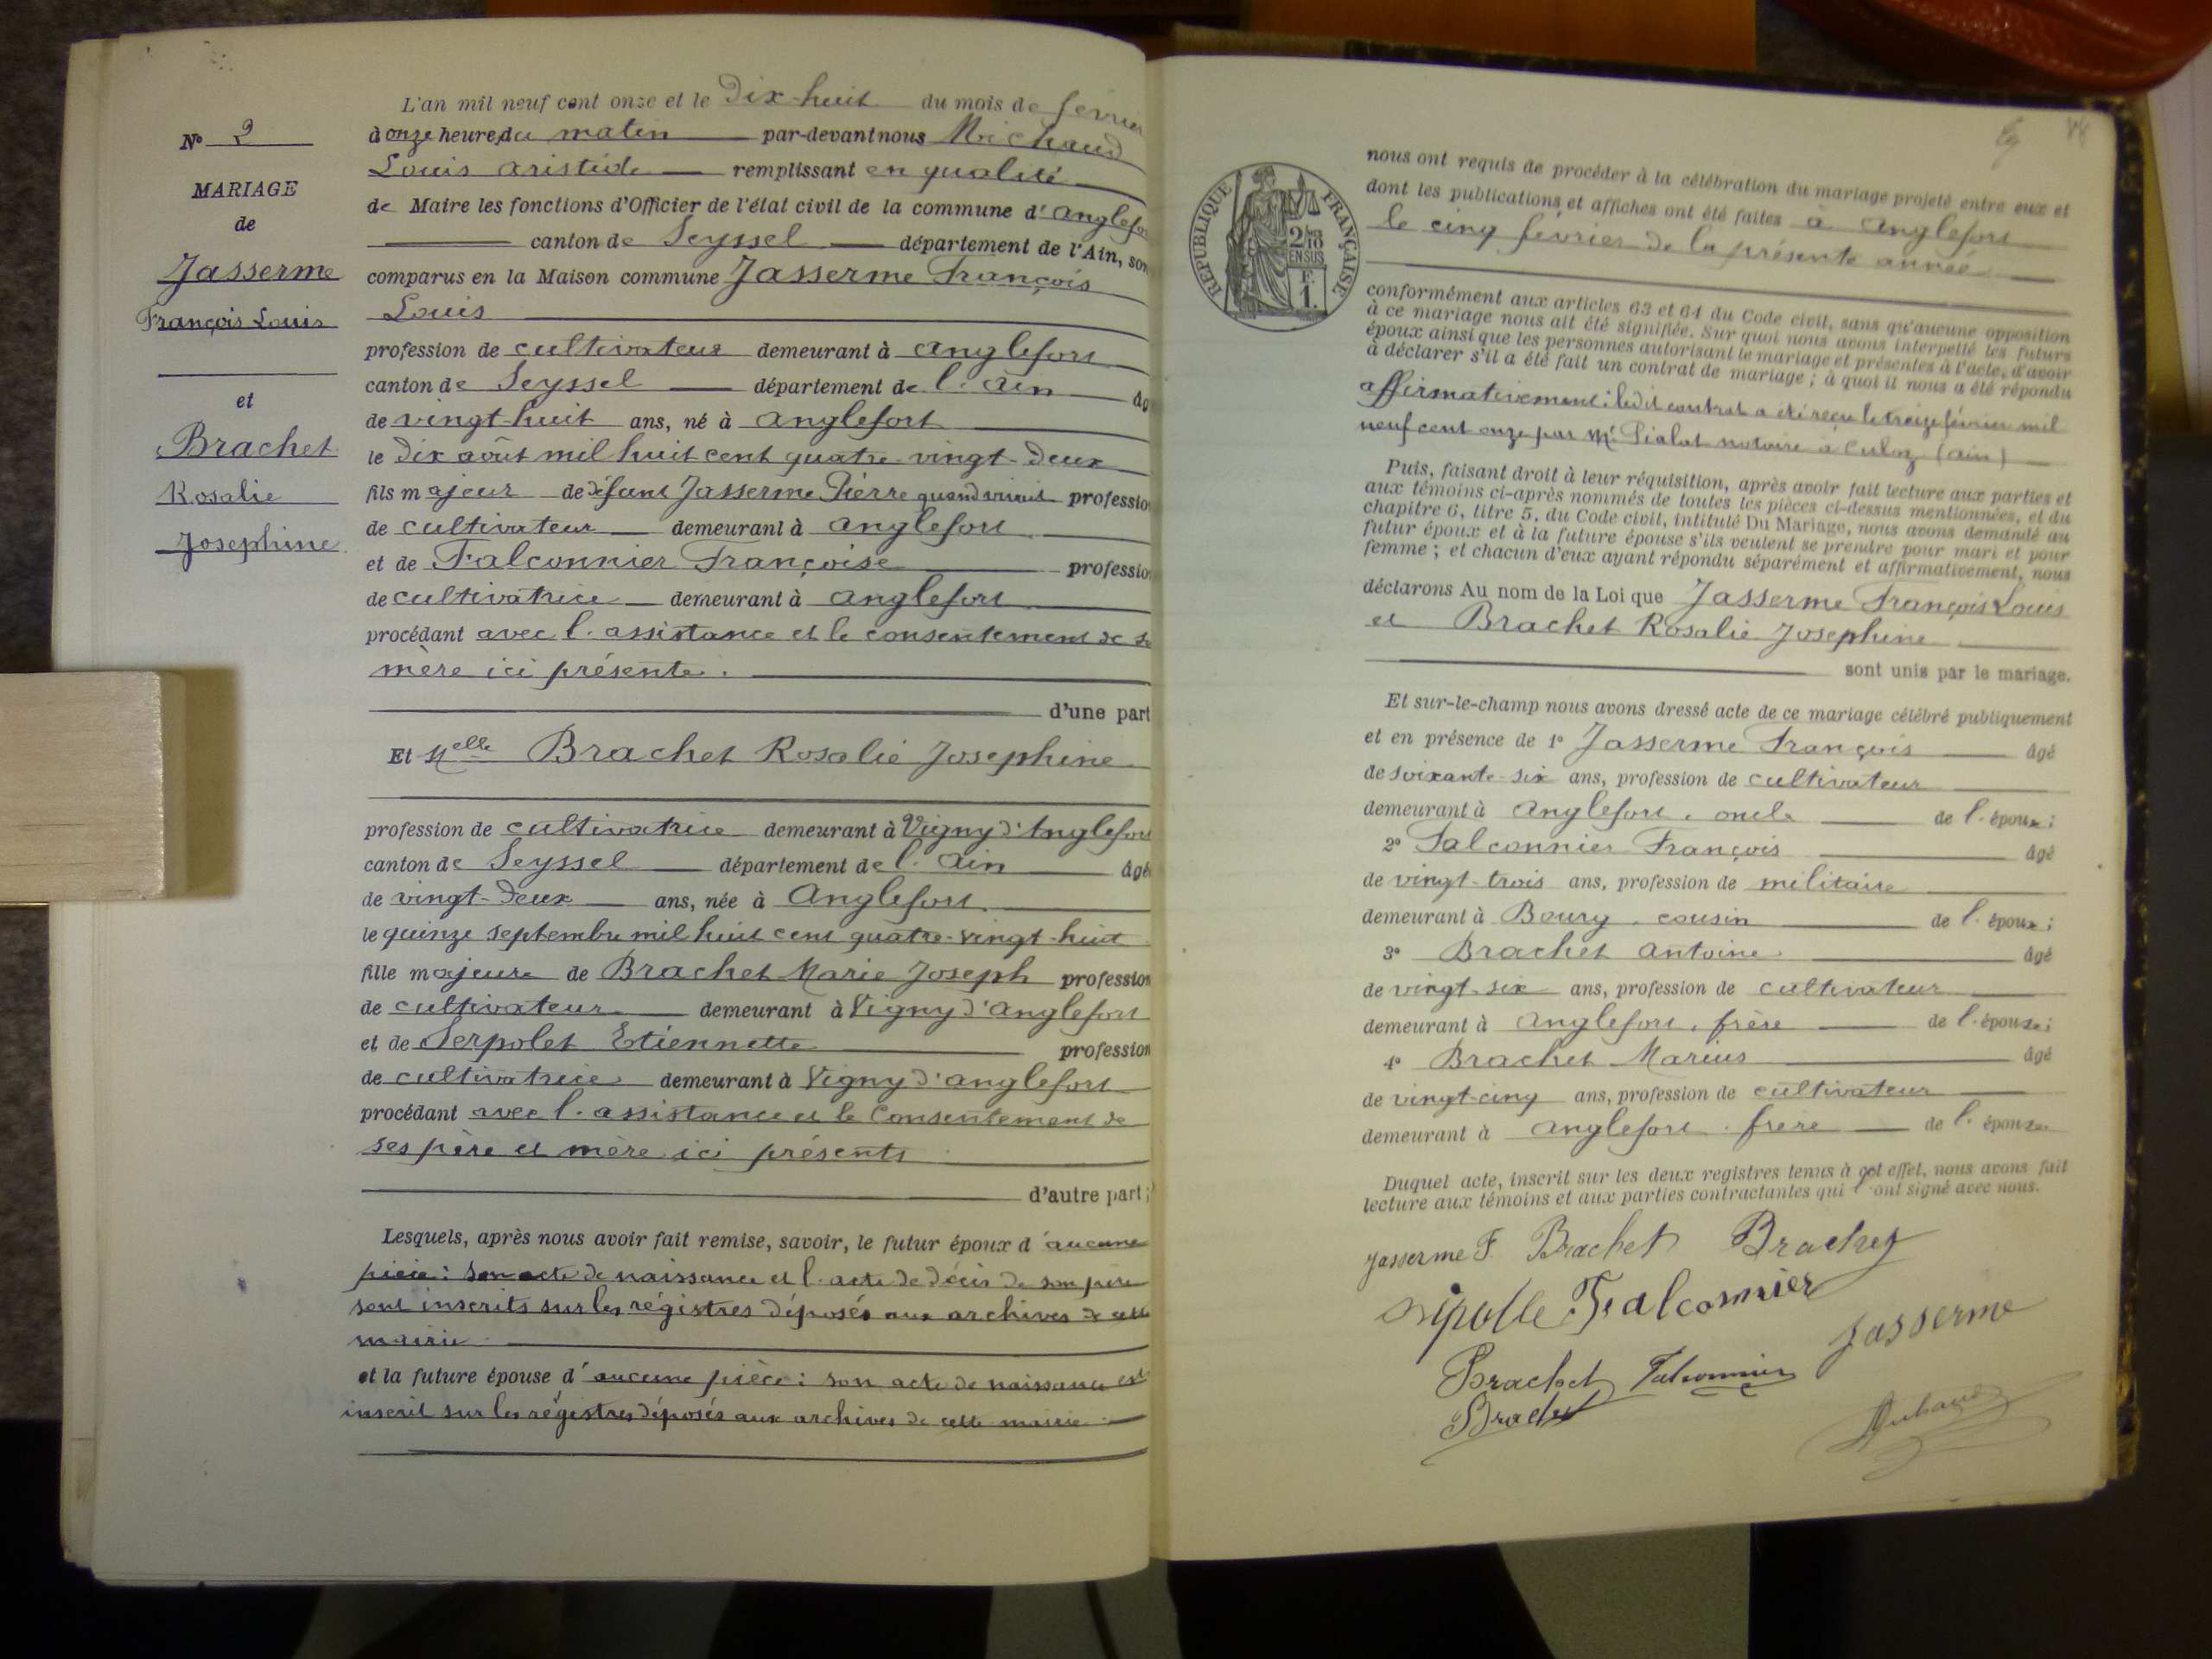 L'an mil neuf cent onze et le Dix-huit du mois de février
N° 2
à onze heures du matin par-devant nous Michaud
Louis Aristide remplissant en qualité
MARIAGE
de Maire les fonctions d'Officier de l'état civil de la commune d'Anglefor
de
canton de Seyssel département de l'Ain, son
Jasserme
comparus en la Maison commune Jasserme François
François Louis
Louis
profession de cultivateur demeurant à Anglefort
canton de Seyssel département de l'Ain âg
et
de vingt-huit ans, né à Anglefort
Brachet
le Dix août mil huit cent quatre-vingt-deux
Rosalie
fils majeur de défunt Jasserme Pierre quand vivait profession
de cultivateur demeurant à Anglefort
Josephine
et de Falconnier Françoise profession
de cultivatrice demeurant à Anglefort
procédant avec l'assistance et le consentement de sa
mère ici présente.
d'une part
Et Melle Brachet Rosalie Josephine
profession de cultivatrice demeurant à Vigny d'Anglefort
canton de Seyssel département de l'Ain âgé
de vingt-deux ans, née à Anglefort
le quinze septembre mil huit cent quatre-vingt-huit
fille majeure de Brachet Marie Joseph profession
de cultivateur demeurant à Vigny d'Anglefort
et de Serpolet Etiennette profession
de cultivatrice demeurant à Vigny d'Anglefort
procédant avec l'assistance et le Consentement de
ses père et mère ici présents
d'autre part;
Lesquels, après nous avoir fait remise, savoir, le futur époux d'aucune
pièce: son acte de naissance et l'acte de décès de son père
sont inscrits sur les régistres déposés aux archives de cette
mairie.
et la future épouse d'aucune pièce: son acte de naissance est
inscrit sur les régistres déposés aux archives de cette mairie.
nous ont requis de procéder à la célébration du mariage projeté entre eux et
dont les publications et affiches ont été faites à Anglefort
le cinq février de la présente année
RÉPUBLIQUE FRANÇAISE
2/10
EN SUS
F.
1.
conformément aux articles 63 et 64 du Code civil, sans qu'aucune opposition
à ce mariage nous ait été signifiée. Sur quoi nous avons interpellé les futurs
époux ainsi que les personnes autorisant le mariage et présentes à l'acte, d'avoir
à déclarer s'il a été fait un contrat de mariage; à quoi il nous a été répondu
affirmativement: ledit contrat a été reçu le treize février mil
neuf cent onze par Me Pialat notaire à Culoz (Ain)
Puis, faisant droit à leur réquisition, après avoir fait lecture aux parties et
aux témoins ci-après nommés de toutes les pièces ci-dessus mentionnées, et du
chapitre 6, titre 5, du Code civil, intitulé Du Mariage, nous avons demandé au
futur époux et à la future épouse s'ils veulent se prendre pour mari et pour
femme; et chacun d'eux ayant répondu séparément et affirmativement, nous
déclarons Au nom de la Loi que Jasserme François Louis
et Brachet Rosalie Josephine
sont unis par le mariage.
Et sur-le-champ nous avons dressé acte de ce mariage célébré publiquement
et en présence de 1° Jasserme François âgé
de soixante-six ans, profession de cultivateur
demeurant à Anglefort, oncle de l'époux;
2° Falconnier François âgé
de vingt-trois ans, profession de militaire
demeurant à Bourg, cousin de l'époux;
3° Brachet Antoine âgé
de vingt-six ans, profession de cultivateur
demeurant à Anglefort, frère de l'épouse;
4° Brachet Marius âgé
de vingt-cinq ans, profession de cultivateur
demeurant à Anglefort, frère de l'épouse
Duquel acte, inscrit sur les deux registres tenus à cet effet, nous avons fait
lecture aux témoins et aux parties contractantes qui ont signé avec nous.
Jasserme F. Brachet Brachet
Falconnier
Jasserme
Brachet Falconnier
Brachet